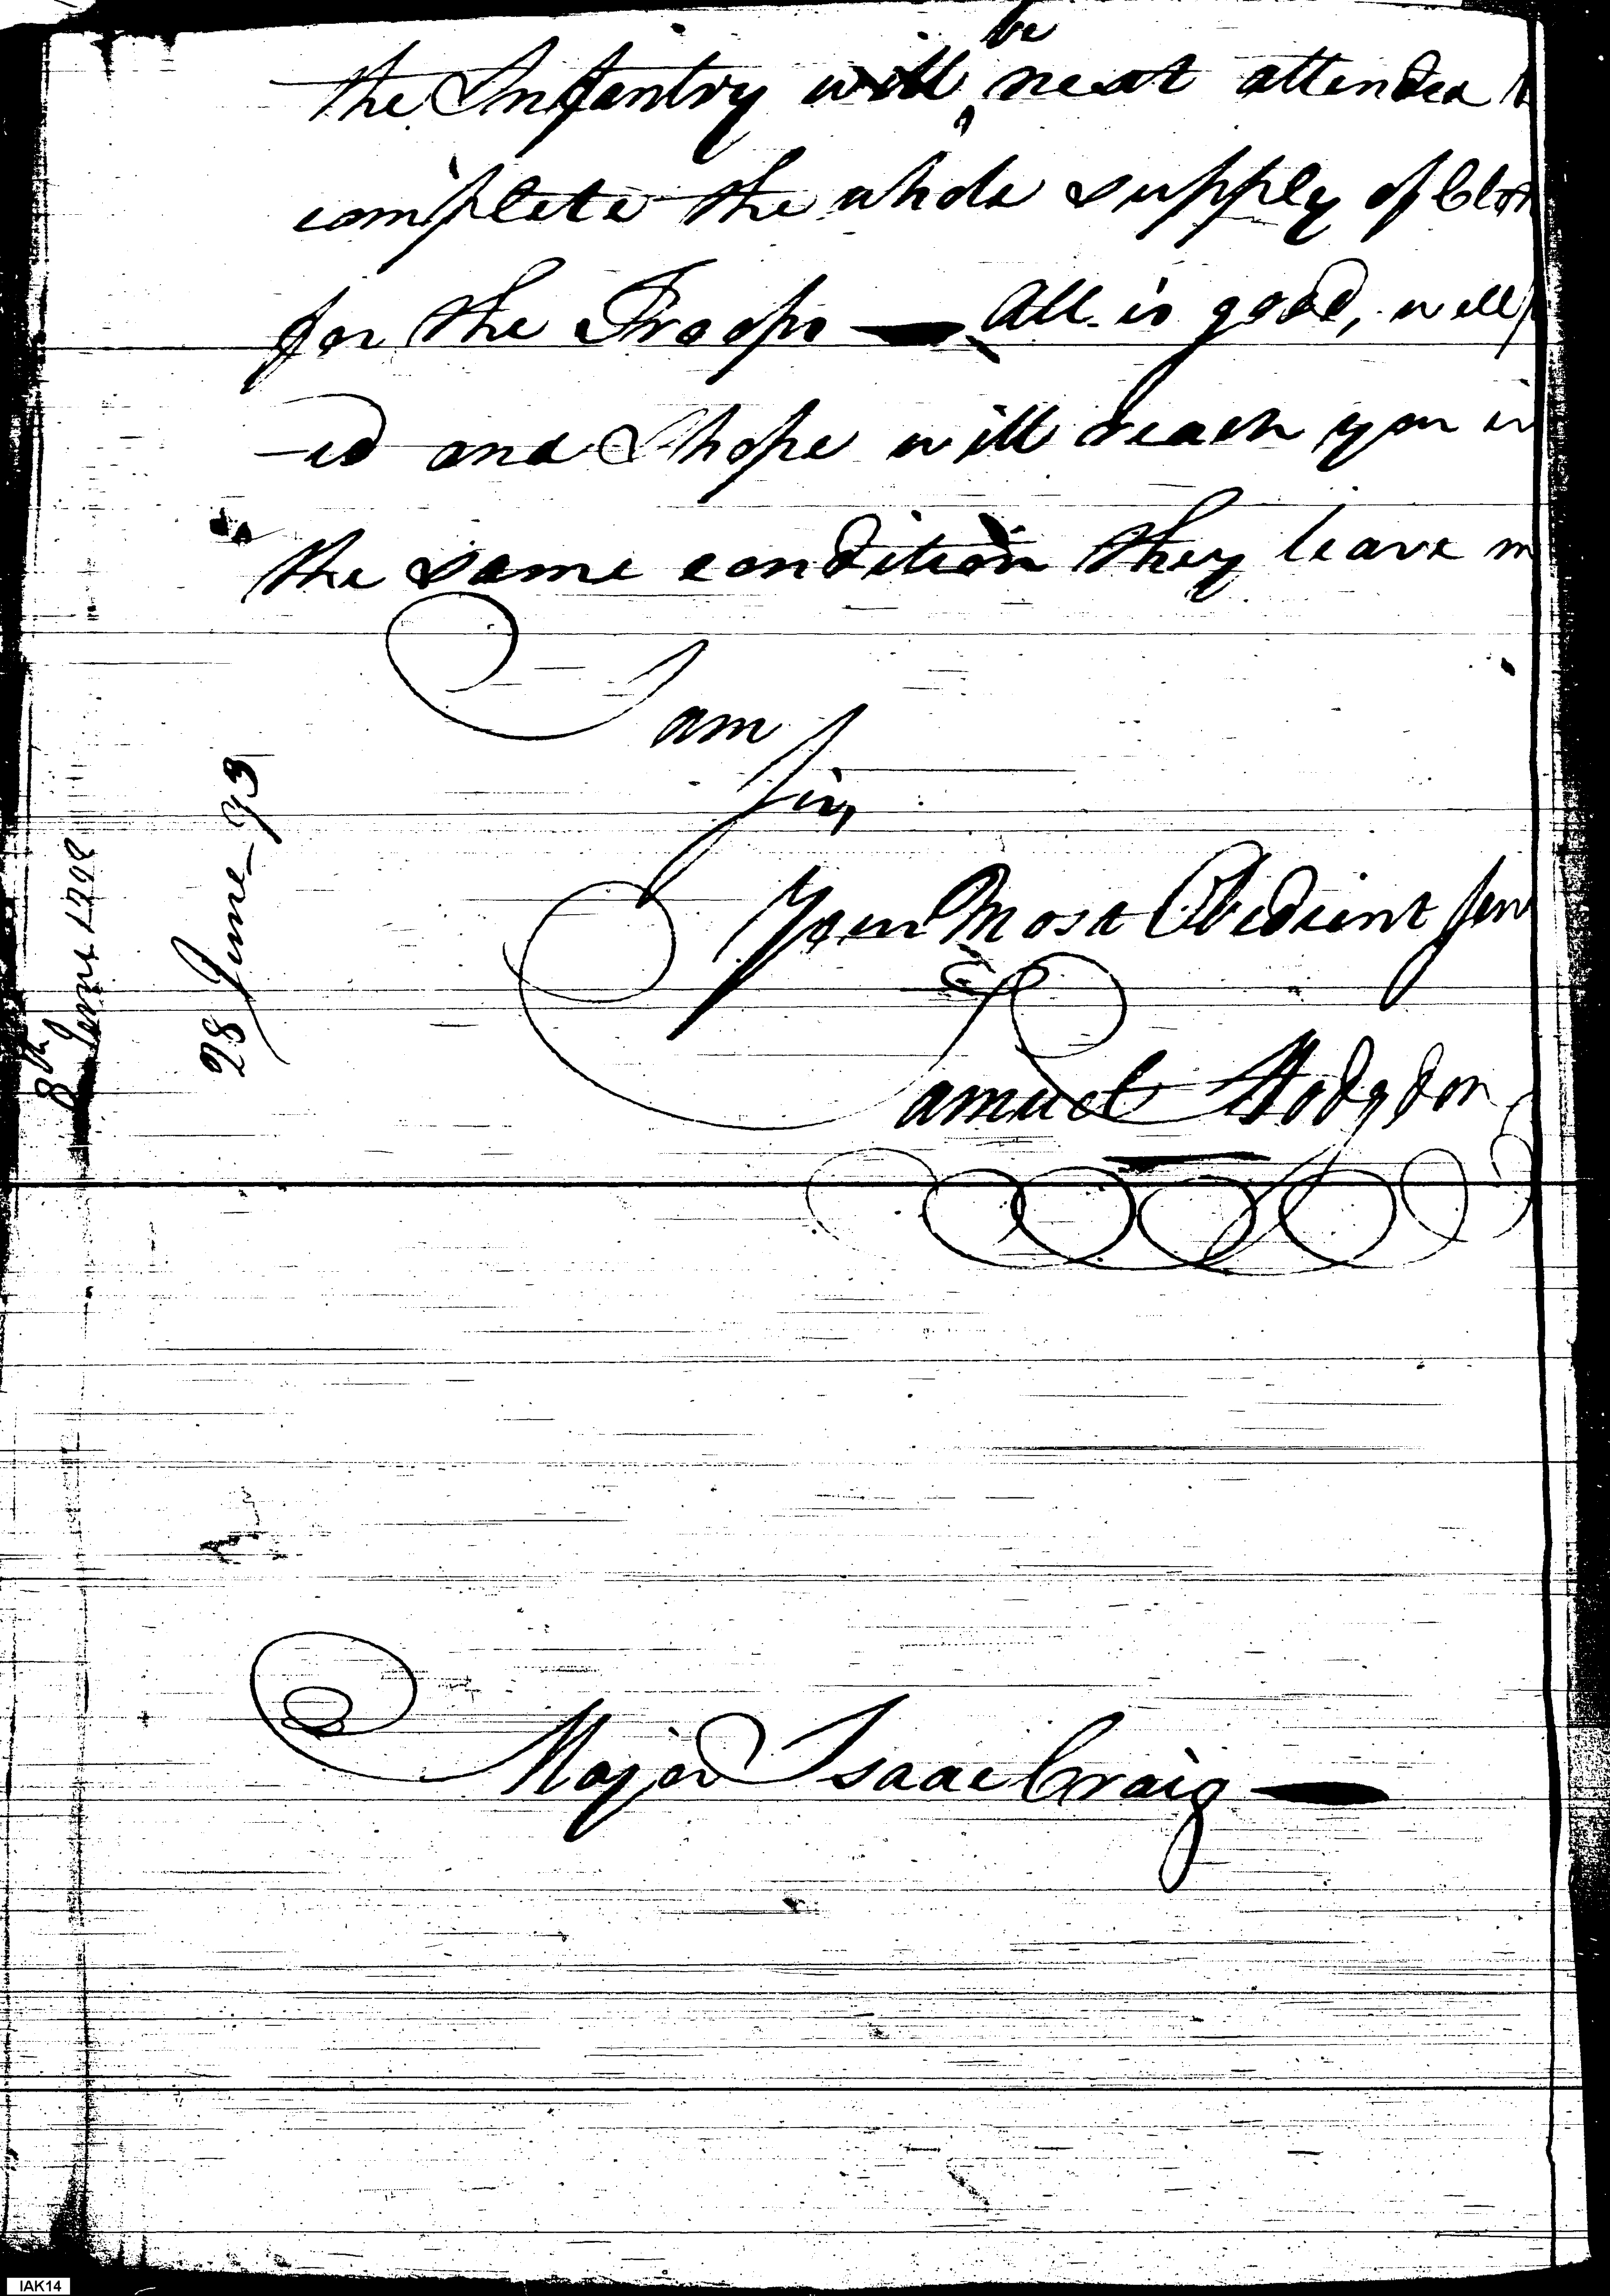 be
the Infantry will ^ next attended
complete the whole supply of Cloth
for the Troops — All is good, well
-ed and I hope will reach you in
the same condition they leave m
I am
Sir,
Your Most Obedient Serv
Samuel Hodgdon
28 June_93
8th June 179
Major Isaac Craig —
IAK14